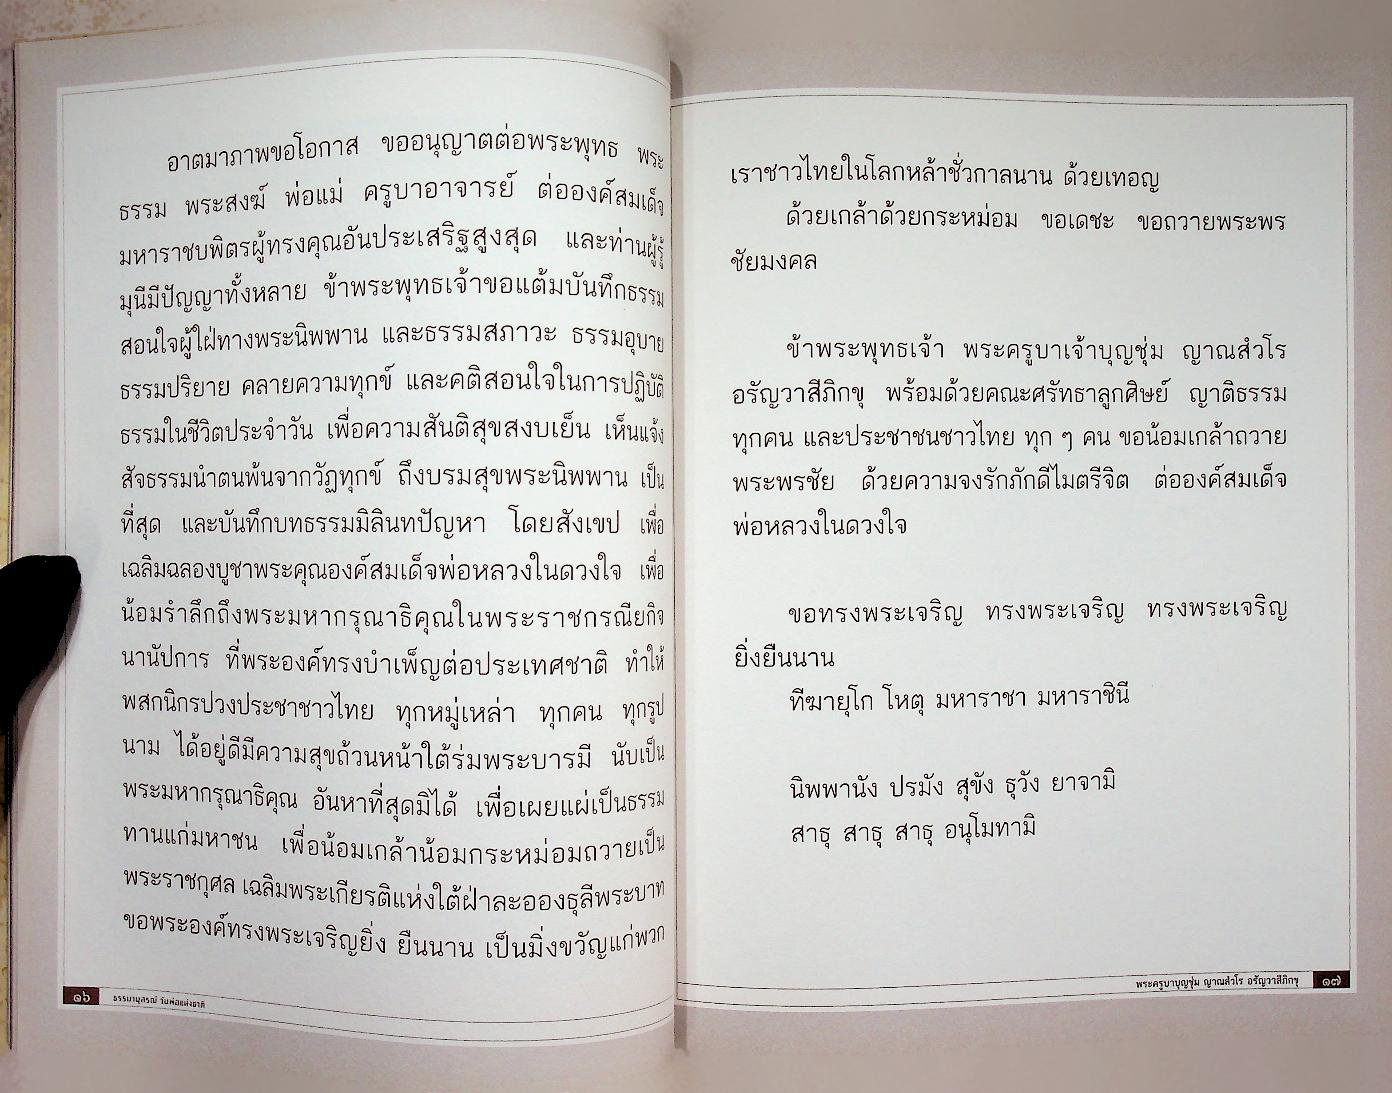 อาตมาภาพขอโอกาส ขออนุญาตต่อพระพุทธ พระ
ธรรม พระสงฆ์ พ่อแม่ ครูบาอาจารย์ ต่อองค์สมเด็จ
มหาราชบพิตรผู้ทรงคุณอันประเสริฐสูงสุด และท่านผู้รู้
มุนีมีปัญญาทั้งหลาย ข้าพระพุทธเจ้าขอแต้มบันทึกธรรม
สอนใจผู้ใฝ่ทางพระนิพพาน และธรรมสภาวะ ธรรมอุบาย
ธรรมปริยาย คลายความทุกข์ และคติสอนใจในการปฏิบัติ
ธรรมในชีวิตประจำวัน เพื่อความสันติสุขสงบเย็น เห็นแจ้ง
สัจธรรมนำตนพ้นจากวัฏทุกข์ ถึงบรมสุขพระนิพพาน เป็น
ที่สุด และบันทึกบทธรรมมิลินทปัญหา โดยสังเขป เพื่อ
เฉลิมฉลองบูชาพระคุณองค์สมเด็จพ่อหลวงในดวงใจ เพื่อ
น้อมรำลึกถึงพระมหากรุณาธิคุณในพระราชกรณียกิจ
นานัปการ ที่พระองค์ทรงบำเพ็ญต่อประเทศชาติ ทำให้
พสกนิกรปวงประชาชาวไทย ทุกหมู่เหล่า ทุกคน ทุกรูป
นาม ได้อยู่ดีมีความสุขถ้วนหน้าใต้ร่มพระบารมี นับเป็น
พระมหากรุณาธิคุณ อันหาที่สุดมิได้ เพื่อเผยแผ่เป็นธรรม
ทานแก่มหาชน เพื่อน้อมเกล้าน้อมกระหม่อมถวายเป็น
พระราชกุศล เฉลิมพระเกียรติแห่งใต้ฝ่าละอองธุลีพระบาท
ขอพระองค์ทรงพระเจริญยิ่ง ยืนนาน เป็นมิ่งขวัญแก่พวก
๑๖ ธรรมานุสรณ์ วันพ่อแห่งชาติ
เราชาวไทยในโลกหล้าชั่วกาลนาน ด้วยเทอญ
ด้วยเกล้าด้วยกระหม่อม ขอเดชะ ขอถวายพระพร
ชัยมงคล
ข้าพระพุทธเจ้า พระครูบาเจ้าบุญชุ่ม ญาณสํวโร
อรัญวาสีภิกขุ พร้อมด้วยคณะศรัทธาลูกศิษย์ ญาติธรรม
ทุกคน และประชาชนชาวไทย ทุก ๆ คน ขอน้อมเกล้าถวาย
พระพรชัย ด้วยความจงรักภักดีไมตรีจิต ต่อองค์สมเด็จ
พ่อหลวงในดวงใจ
ขอทรงพระเจริญ ทรงพระเจริญ ทรงพระเจริญ
ยิ่งยืนนาน
ทีฆายุโก โหตุ มหาราชา มหาราชินี
นิพพานัง ปรมัง สุขัง ธุวัง ยาจามิ
สาธุ สาธุ สาธุ อนุโมทามิ
พระครูบาบุญชุ่ม ญาณสํวโร อรัญวาสีภิกขุ ๑๗